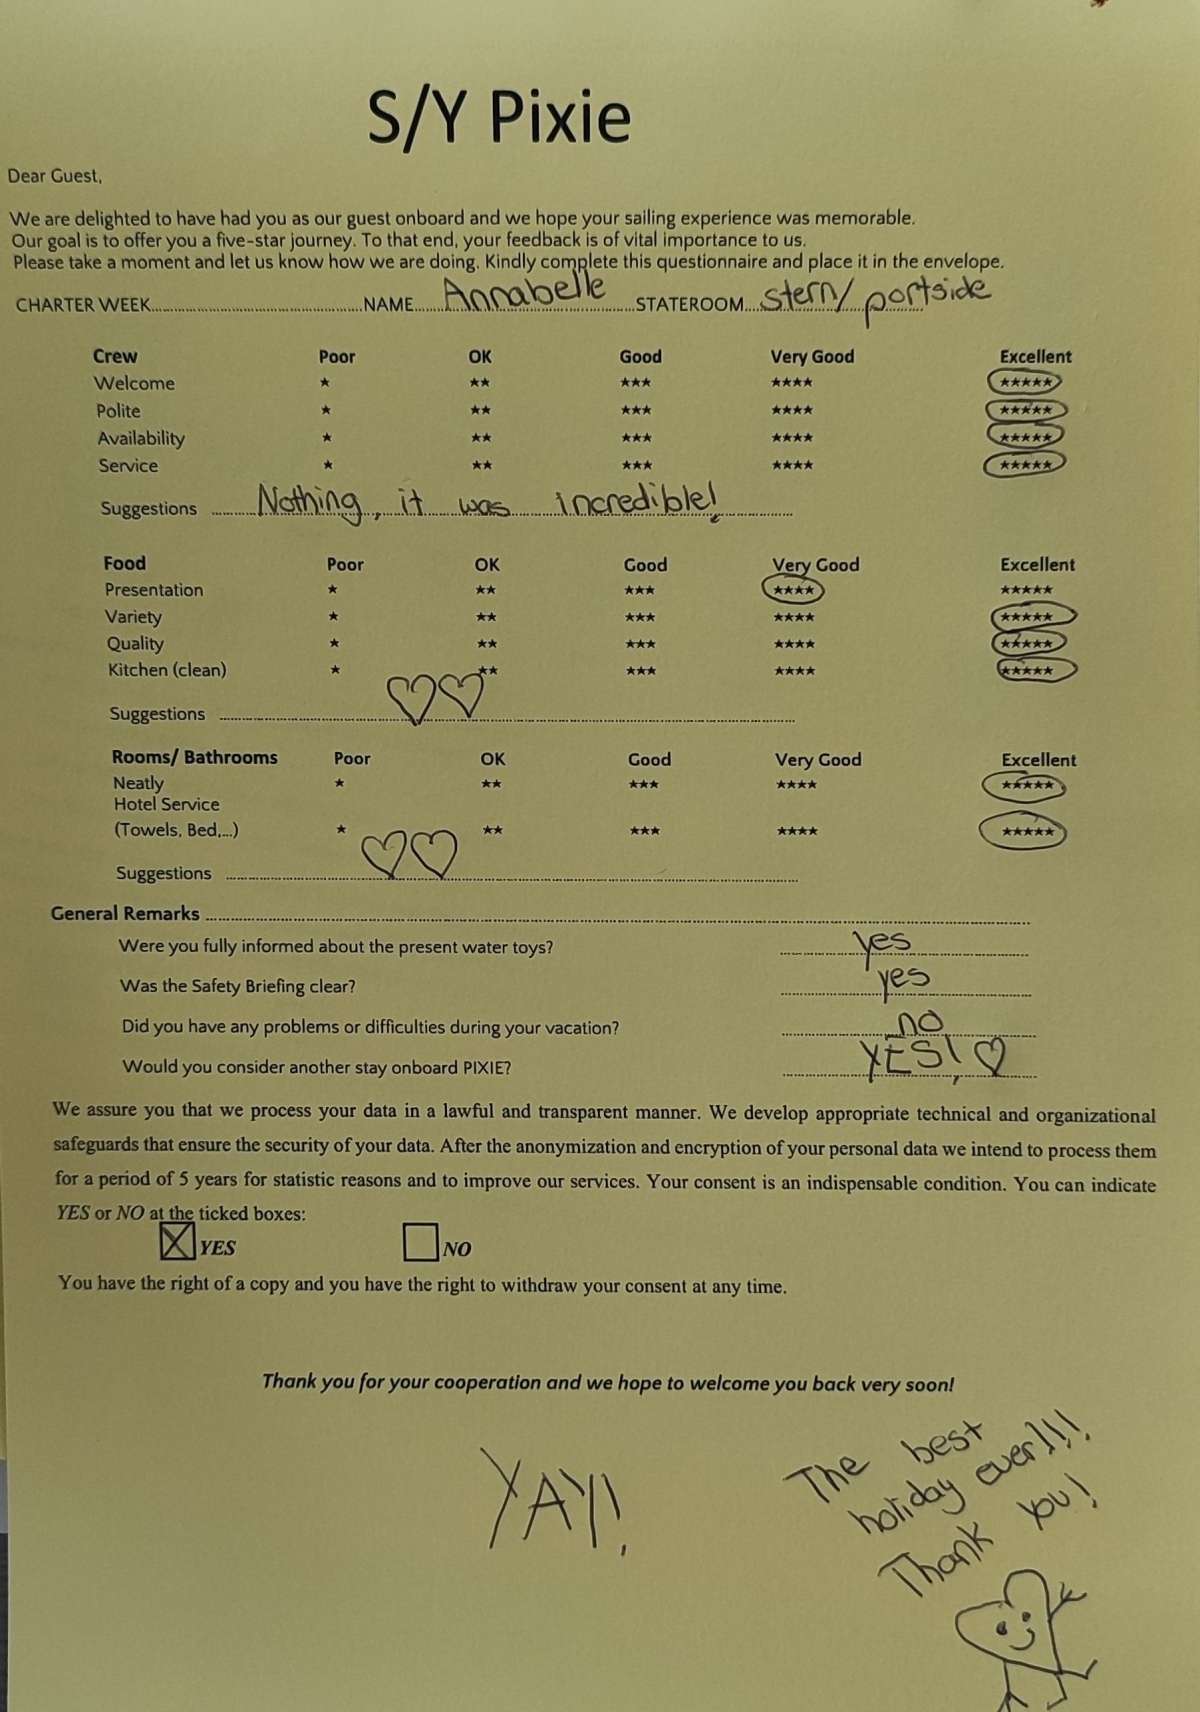 S/Y Pixie
Dear Guest,
We are delighted to have had you as our guest onboard and we hope your sailing experience was memorable.
Our goal is to offer you a five-star journey. To that end, your feedback is of vital importance to us.
Please take a moment and let us know how we are doing. Kindly complete this questionnaire and place it in the envelope.
CHARTER WEEK NAME Annabelle STATEROOM stern/ portside
Crew Poor OK Good Very Good Excellent
Welcome ★ ★★ ★★★ ★★★★ ★★★★★
Polite ★ ★★ ★★★ ★★★★ ★★★★★
Availability ★ ★★ ★★★ ★★★★ ★★★★★
Service ★ ★★ ★★★ ★★★★ ★★★★★
Suggestions Nothing, it was incredible!
Food Poor OK Good Very Good Excellent
Presentation ★ ★★ ★★★ ★★★★ ★★★★★
Variety ★ ★★ ★★★ ★★★★ ★★★★★
Quality ★ ★★ ★★★ ★★★★ ★★★★★
Kitchen (clean) ★ ★★ ★★★ ★★★★ ★★★★★
Suggestions ♡♡
Rooms/ Bathrooms Poor OK Good Very Good Excellent
Neatly ★ ★★ ★★★ ★★★★ ★★★★★
Hotel Service
(Towels, Bed,...) ★ ★★ ★★★ ★★★★ ★★★★★
Suggestions ♡♡
General Remarks
Were you fully informed about the present water toys? yes
Was the Safety Briefing clear? yes
Did you have any problems or difficulties during your vacation? no
Would you consider another stay onboard PIXIE? YES! ♡
We assure you that we process your data in a lawful and transparent manner. We develop appropriate technical and organizational
safeguards that ensure the security of your data. After the anonymization and encryption of your personal data we intend to process them
for a period of 5 years for statistic reasons and to improve our services. Your consent is an indispensable condition. You can indicate
YES or NO at the ticked boxes:
☒ YES ☐ NO
You have the right of a copy and you have the right to withdraw your consent at any time.
Thank you for your cooperation and we hope to welcome you back very soon!
YAY!
The best
holiday ever!!!
Thank you!